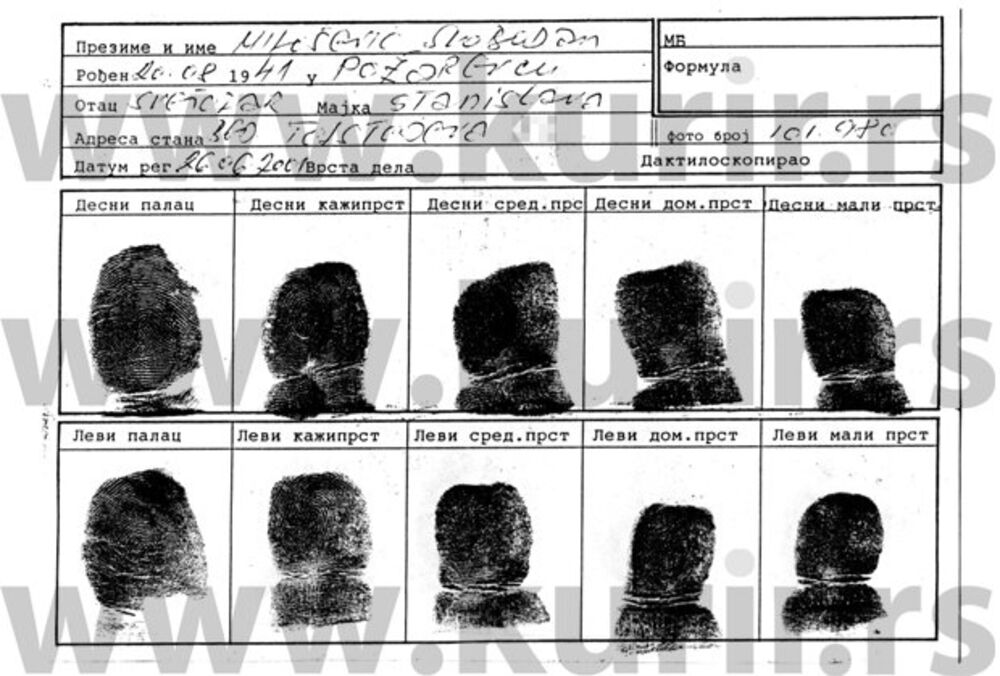 Презиме и име Milošević Slobodan
МБ
Рођен 20.08 1941 у POŽAREVCU
Формула
Отац SVETOZAR Мајка STANISLAVA
Адреса стана TOLSTOJEVA
фото број 101.980
Датум рег 26.06.2001 Врста дела
Дактилоскопирао
Десни палац Десни кажипрст Десни сред.прс Десни дом.прст Десни мали прст
Леви палац Леви кажипрст Леви сред.прст Леви дом.прст Леви мали прст
www.kurir.rs
www.kurir.rs
www.kurir.rs